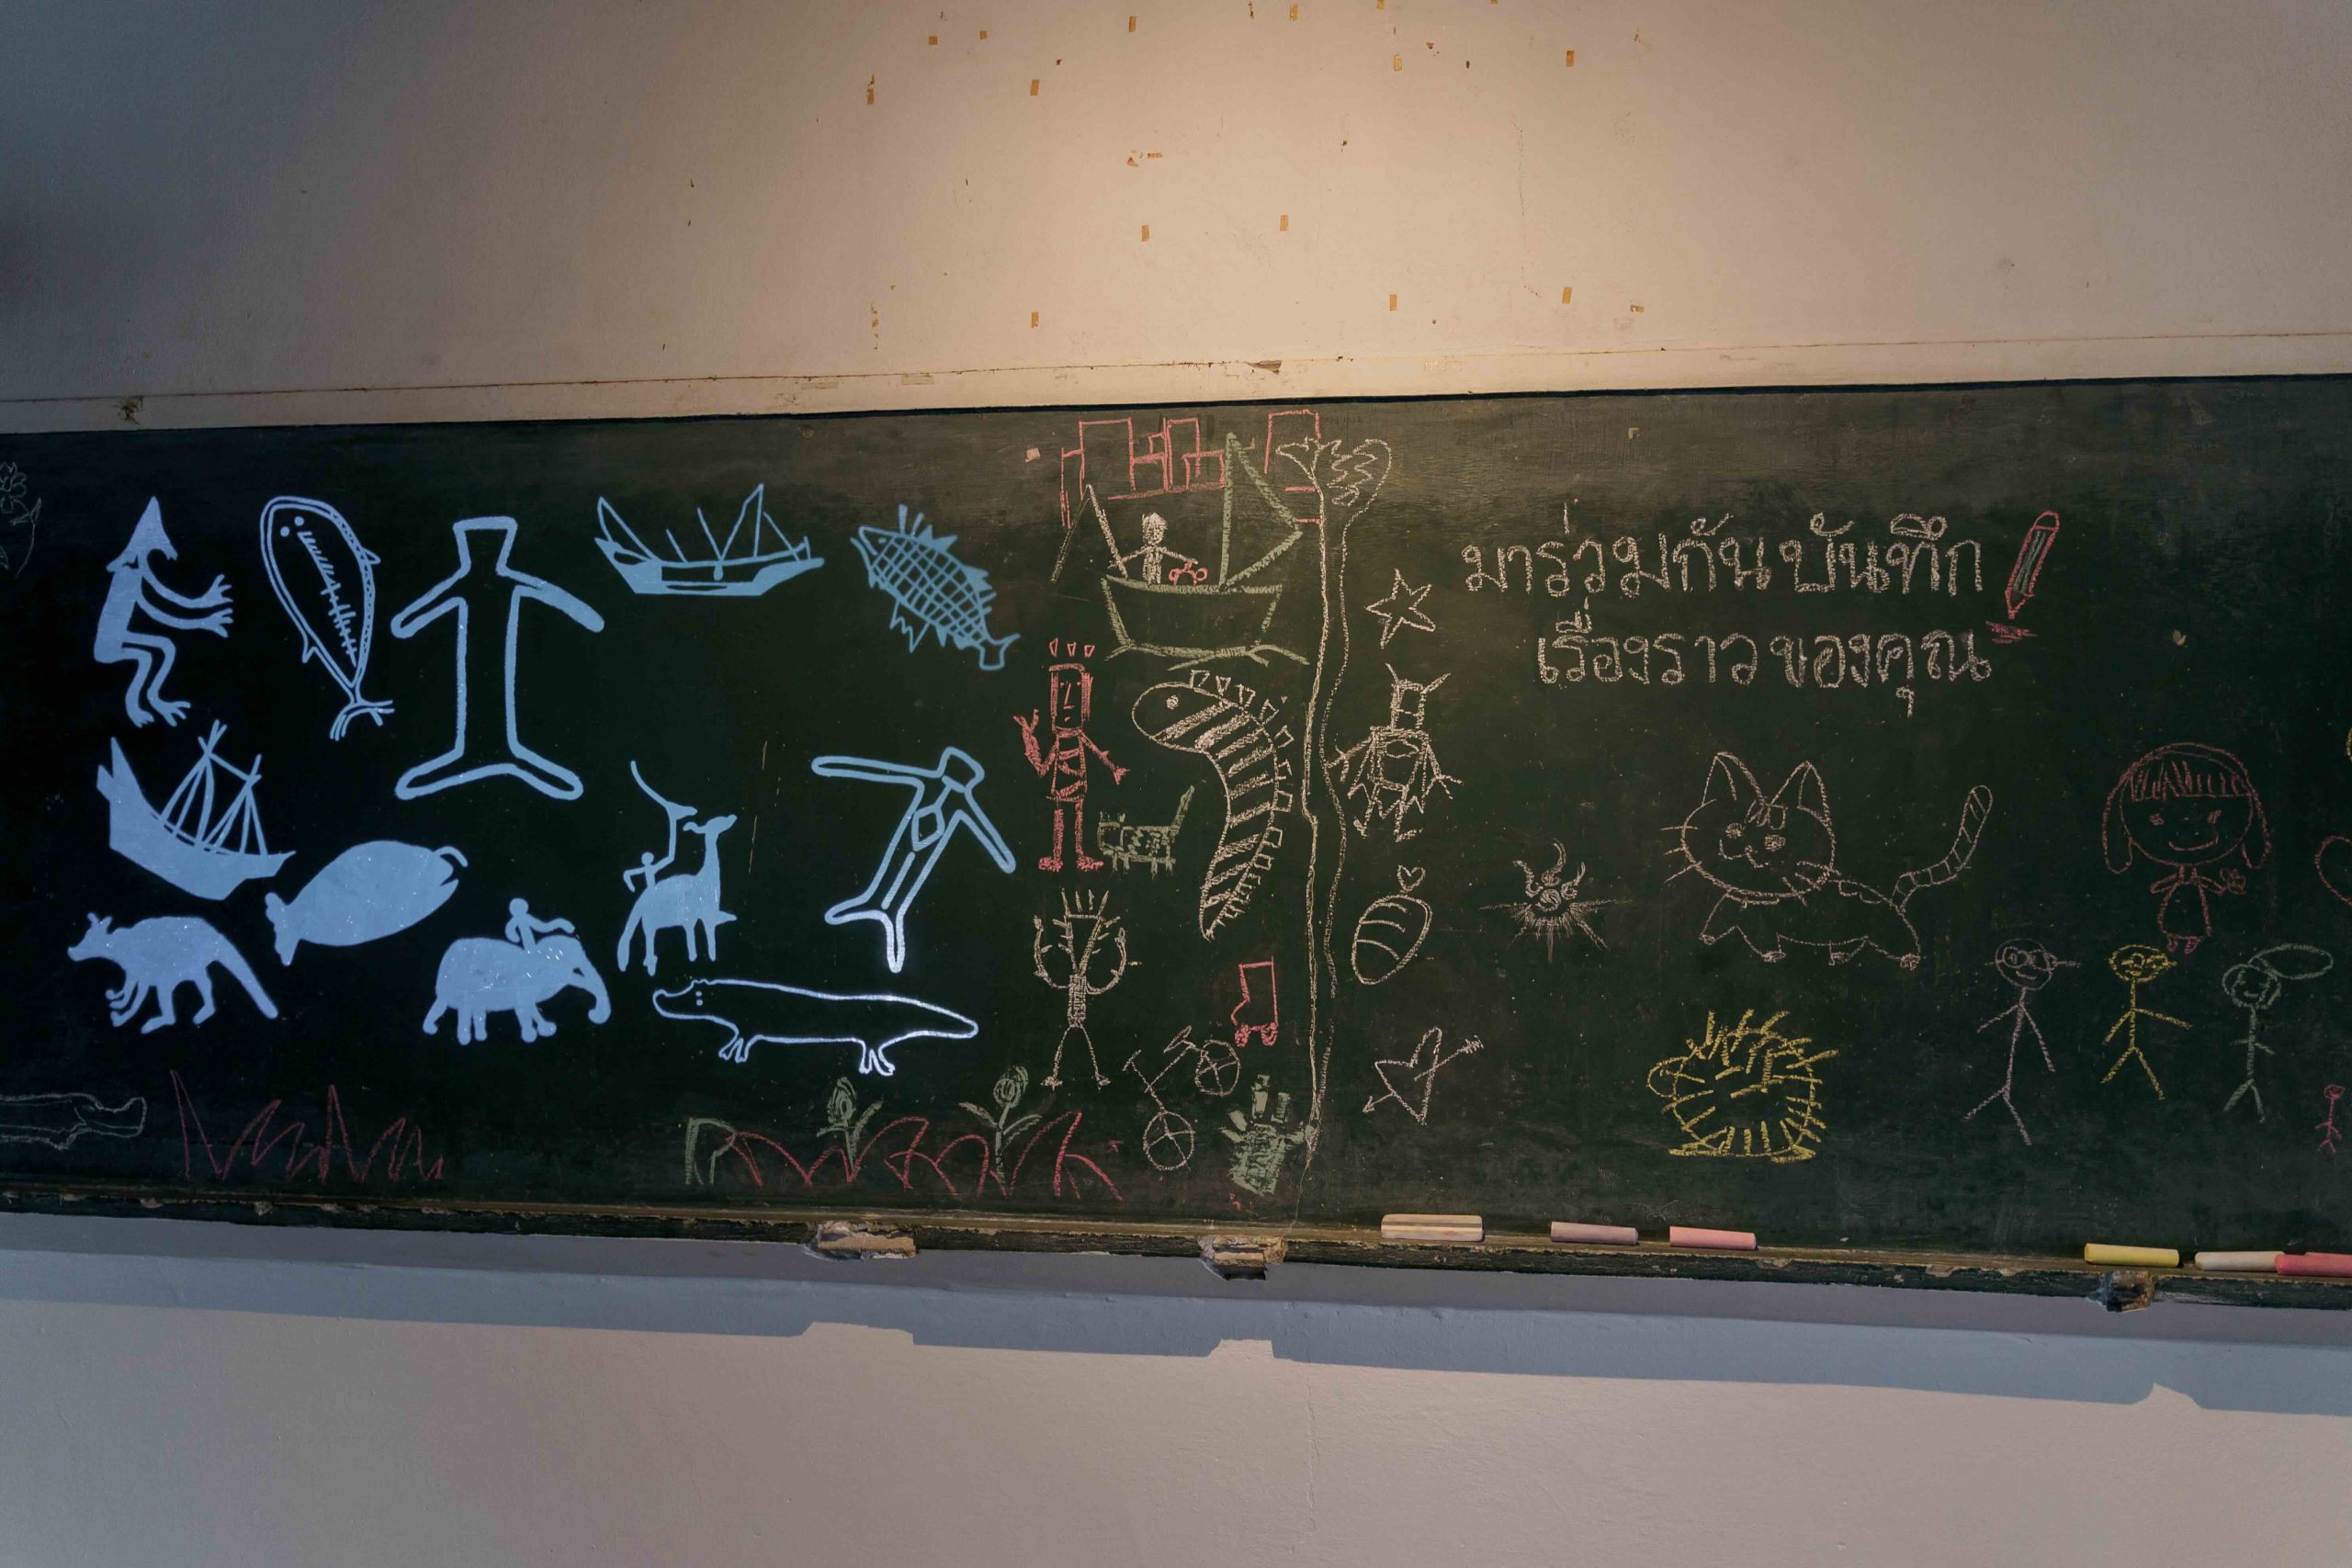 มาร่วมกันบันทึก
เรื่องราวของคุณ